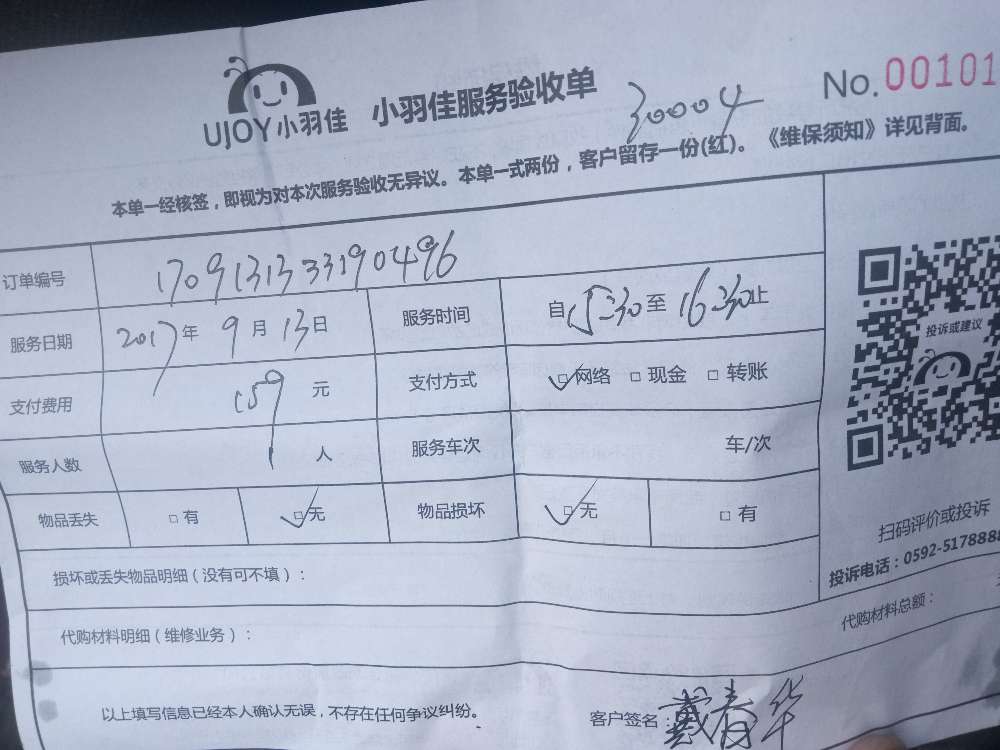 UJOY小羽佳 小羽佳服务验收单 No.00101
30004
本单一经核签，即视为对本次服务验收无异议。本单一式两份，客户留存一份(红)。《维保须知》详见背面。
订单编号 1709131333190496
服务日期 2017年9月13日 服务时间 自15:30至16:30止
支付费用 159元 支付方式 □网络 □现金 □转账
服务人数 1人 服务车次 车/次
物品丢失 □有 □无 物品损坏 □无 □有
投诉或建议
扫码评价或投诉
投诉电话：0592-5178888
损坏或丢失物品明细（没有可不填）：
代购材料明细（维修业务）： 代购材料总额：
以上填写信息已经本人确认无误，不存在任何争议纠纷。 客户签名：戴春华